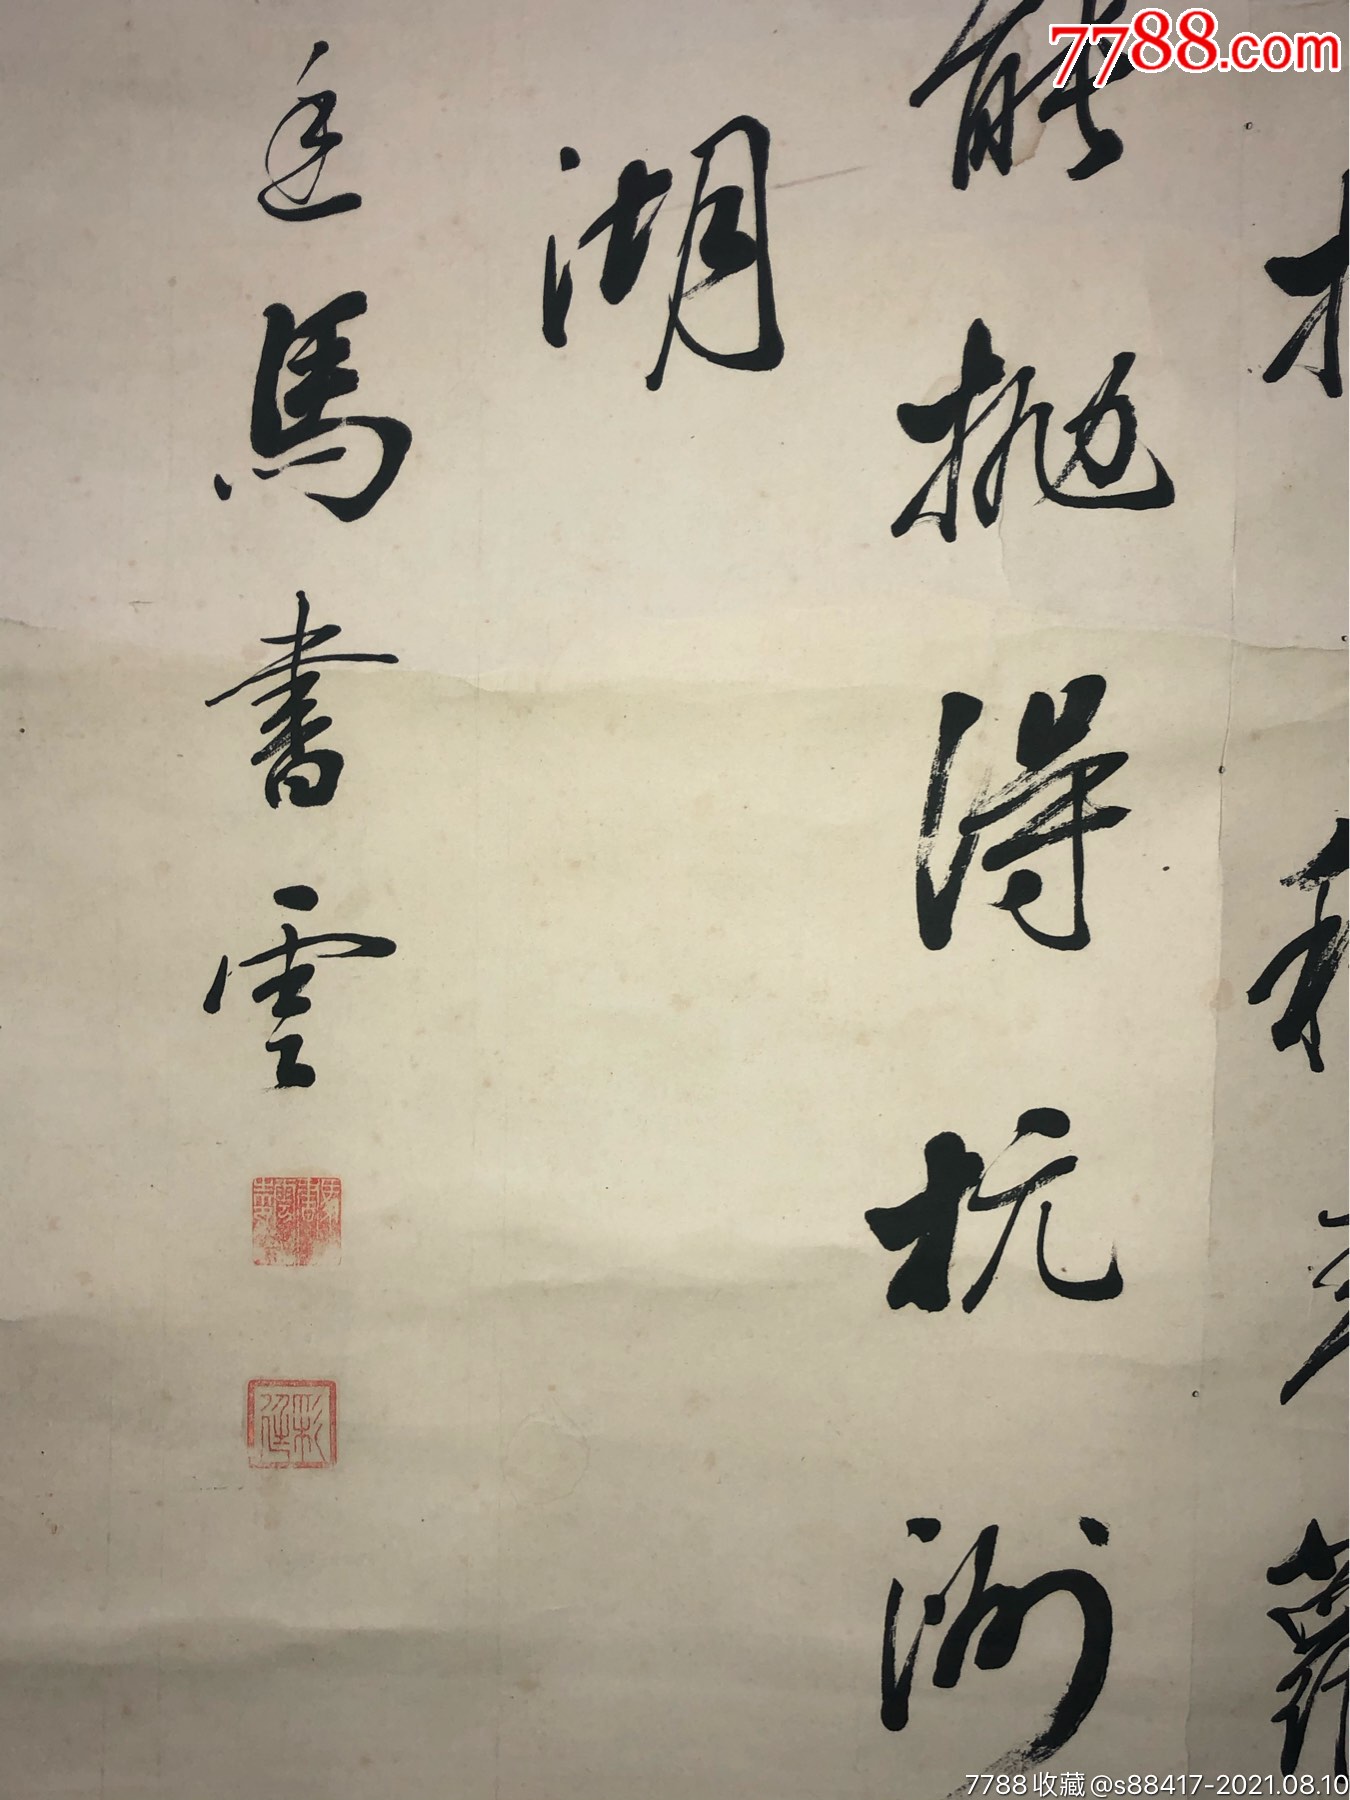 7788.com
能拋得杭洲
湖
廷馬書雲
彩廷
7788收藏@s88417-2021.08.10